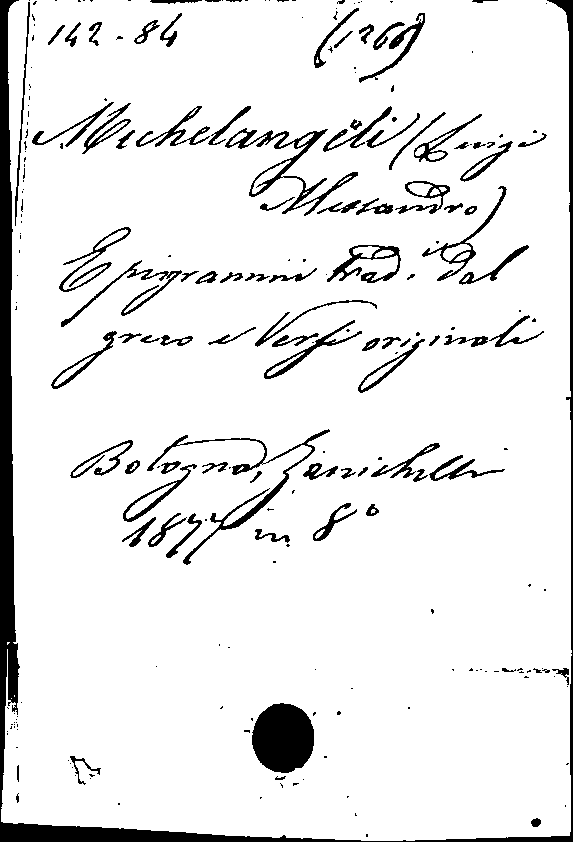 142-84 (1266)
Michelangeli (Luigi
Alessandro)
Epigrammi trad.ti dal
greco e Versi originali
Bologna, Zanichelli
1877 in 8°